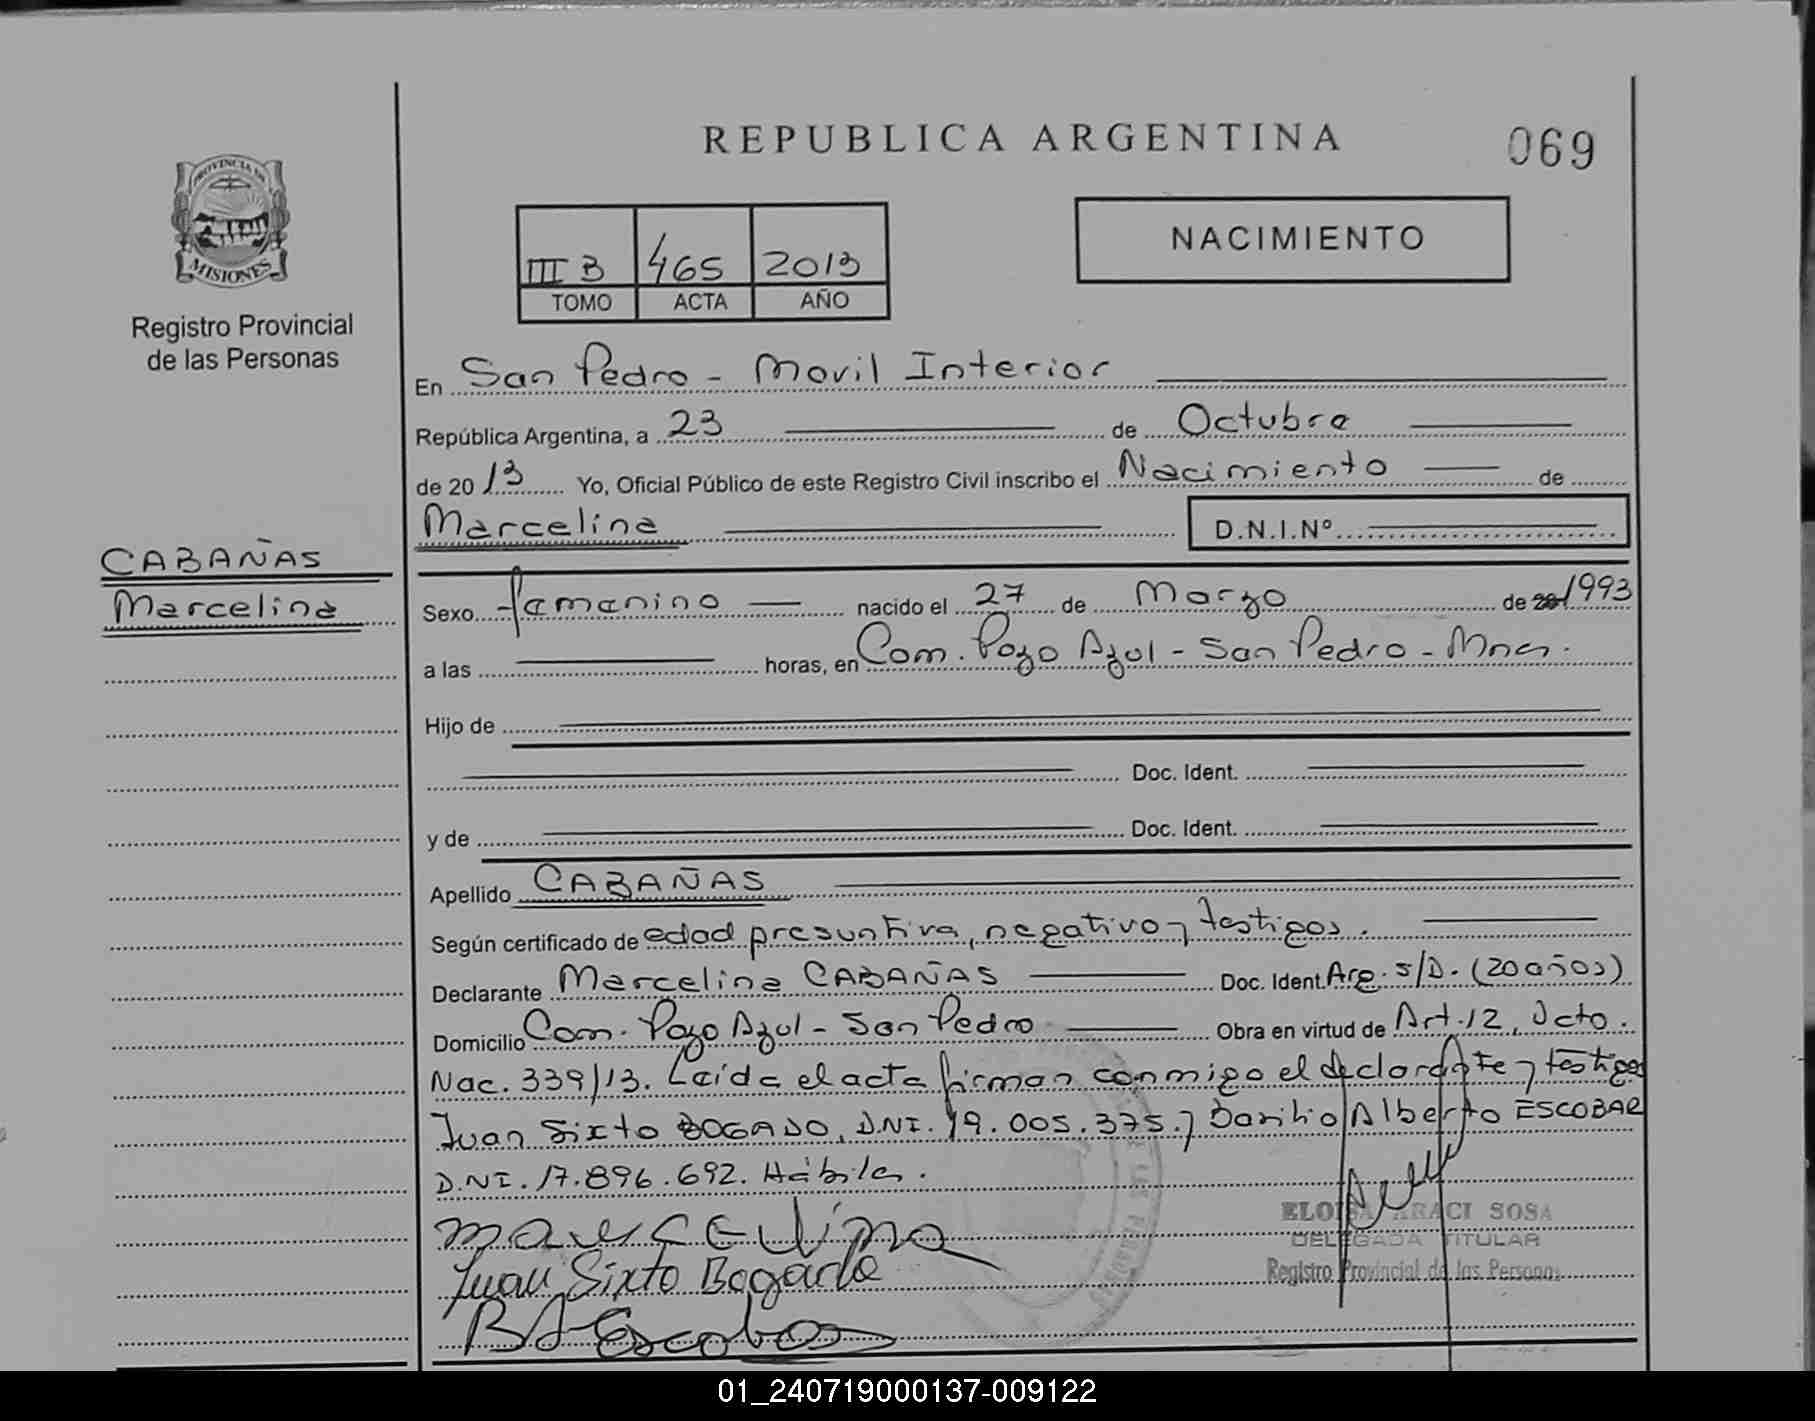 REPUBLICA ARGENTINA
069
PROVINCIA DE
MISIONES
Registro Provincial
de las Personas
NACIMIENTO
III B 465 2013
TOMO ACTA AÑO
En San Pedro - Movil Interior
República Argentina, a 23 de Octubre
de 2013 Yo, Oficial Público de este Registro Civil inscribo el Nacimiento de
Marcelina D.N.I.Nº
CABAÑAS
Marcelina
Sexo femenino nacido el 27 de Marzo de 20 1993
a las horas, en Com. Pozo Azul - San Pedro - Mnes.
Hijo de
Doc. Ident.
y de Doc. Ident.
Apellido CABAÑAS
Según certificado de edad presuntiva, negativo y testigos.
Declarante Marcelina CABAÑAS Doc. Ident. Arg. S/D. (20 años)
Domicilio Com. Pozo Azul - San Pedro Obra en virtud de Art. 12, Dcto.
Nac. 339/13. Leída el acta firman conmigo el declarante y testigos
Juan Sixto BOGADO, D.N.I. 19.005.375. y Basilio Alberto ESCOBAR
D.N.I. 17.896.692. Hábiles.
Marcelina
Juan Sixto Bogado
B A Escobar
ELOISA ARACI SOSA
DELEGADA TITULAR
Registro Provincial de las Personas
01_240719000137-009122